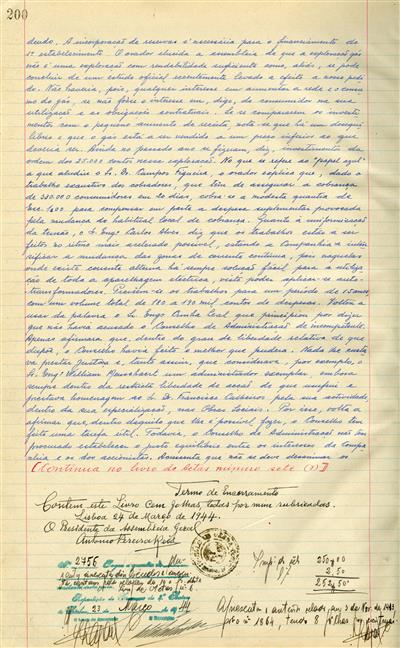 200
deudo. A incorporação de reservas é necessária para o financiamento do
1º estabelecimento. O orador elucida a assembleia de que a exploração gás
não é uma exploração com rendabilidade suficiente como, aliás, se pode
concluir de um estudo oficial recentemente levado a efeito a nosso pedi-
do. Não haveria, pois, qualquer interesse em aumentar a rede e o consu-
mo do gás, se não fôsse o interesse em, digo, do consumidor na sua
utilização e as obrigações contratuais. Se se compararem os investi-
mentos com o pequeno aumento de receita, nota-se que há um desequi-
líbrio e que o gás está a ser vendido a um preço inferior ao que
deveria ser. Ainda no passado ano se fizeram, diz, investimentos da
ordem dos 25.000 contos nessa exploração. No que se refere ao "papel azul"
a que aludira o Sr. Dr. Campos Figueira, o orador explica que, dado o
trabalho exaustivo dos cobradores, que têm de assegurar a cobrança
de 320.000 consumidores em 20 dias, cobra-se a modesta quantia de
Esc. 1$00 para compensar em parte a despesa suplementar provocada
pela mudança do habitual local de cobrança. Quanto à uniformização
da tensão, o Sr. Engº Carlos Alves diz que os trabalhos estão a ser
feitos no ritmo mais acelerado possível, estando a Companhia a inten-
sificar a mudança das zonas de corrente contínua, pois naquelas
onde existe corrente alterna há sempre solução fácil para a utiliza-
ção de toda a aparelhagem eléctrica, visto poder aplicar-se auto-
transformadores. Prevêem-se os trabalhos para um período de 15 anos
com um volume total de 180 a 190 mil contos de despesas. Voltou a
usar da palavra o Sr. Engº Cunha Leal que principiou por dizer
que não havia acusado o Conselho de Administração de incompetente.
Apenas afirmara que, dentro do grau de liberdade relativa de que
dispõe, o Conselho havia feito o melhor que pudera. Nada lhe custa-
va prestar justiça e, tanto assim, que considerava, por exemplo, o
Sr. Engº William
um administrador exemplar, embora
sempre dentro da restrita liberdade de acção de que usufrui e
prestava homenagem ao Sr. Dr. Francisco
pela sua actividade,
dentro da sua especialização, nas Obras Sociais. Por isso, volta a
afirmar que, dentro daquilo que lhe é possível fazer, o Conselho tem
feito uma tarefa útil. Todavia, o Conselho de Administração não tem
procurado estabelecer o justo equilíbrio entre os interesses da Compa-
nhia e os dos accionistas. Acrescenta que não se deve descuidar os
[Continua no livro de actas número sete (7)]
Termo de Encerramento
Contem este Livro Cem folhas, todas por mim rubricadas.
Lisboa 24 de Março de 1944.
O Presidente da Assembleia Geral
Antonio
Nº 2756
250$00
2.50
252$50
23 Março